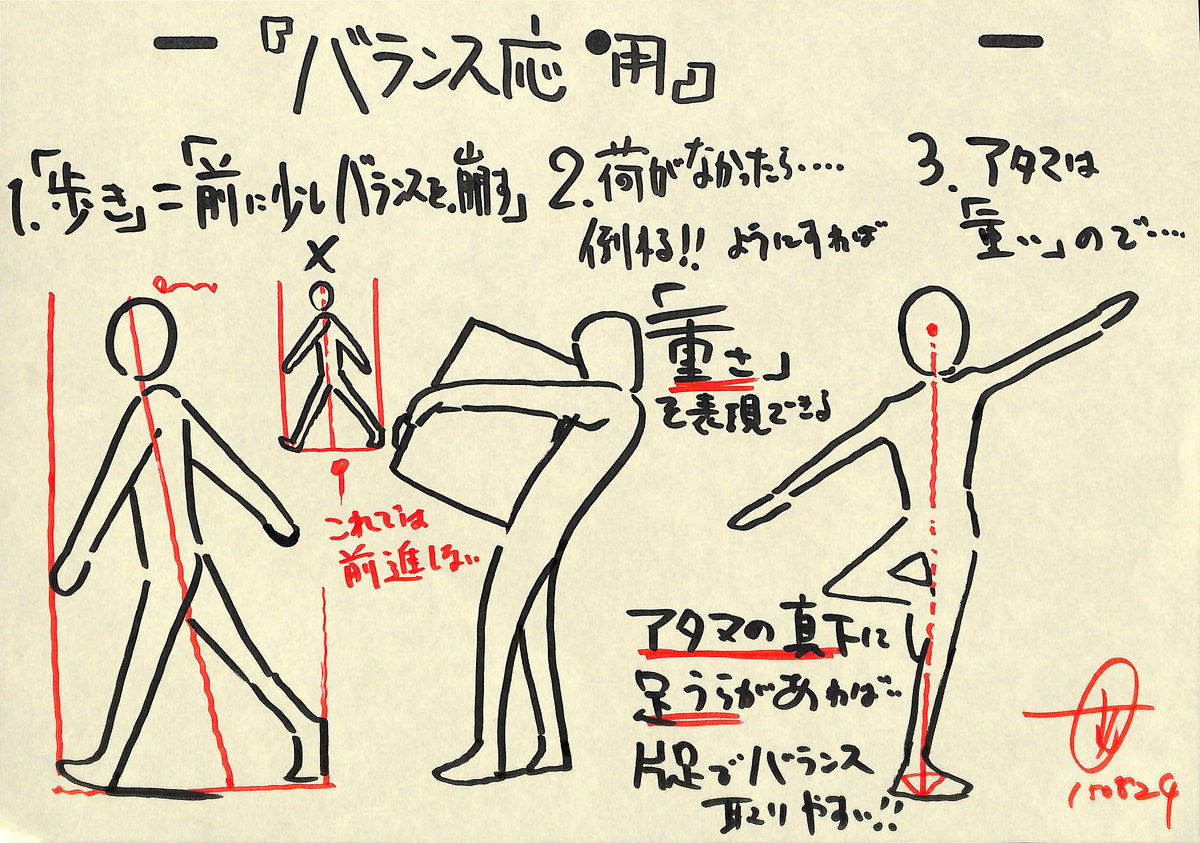 『バランス応用』
1.「歩き」=「前に少しバランスを崩す」
×
これでは
前進しない
2.荷がなかったら‥‥
倒れる!!ようにすれば
「重さ」
を表現できる
3.アタマは
「重い」ので‥‥
アタマの真下に
足うらがあれば‥
片足でバランス
取りやすい!!
150824